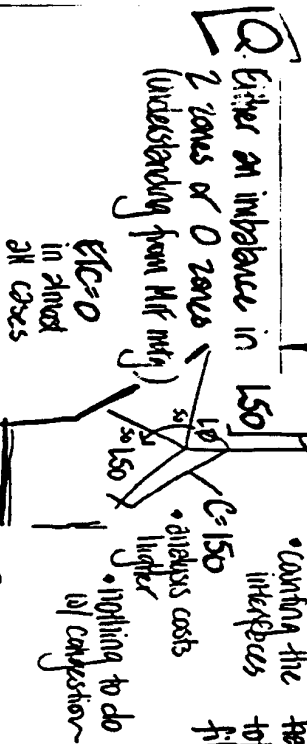 Q. Either an imbalance in
2 zones or 0 zones
(understanding from
ETC=0
in almost
all cases
L50
L50
50
C=150
• analysis costs
higher
• nothing to do
w/ congestion
• confirm the
interfaces
the
to